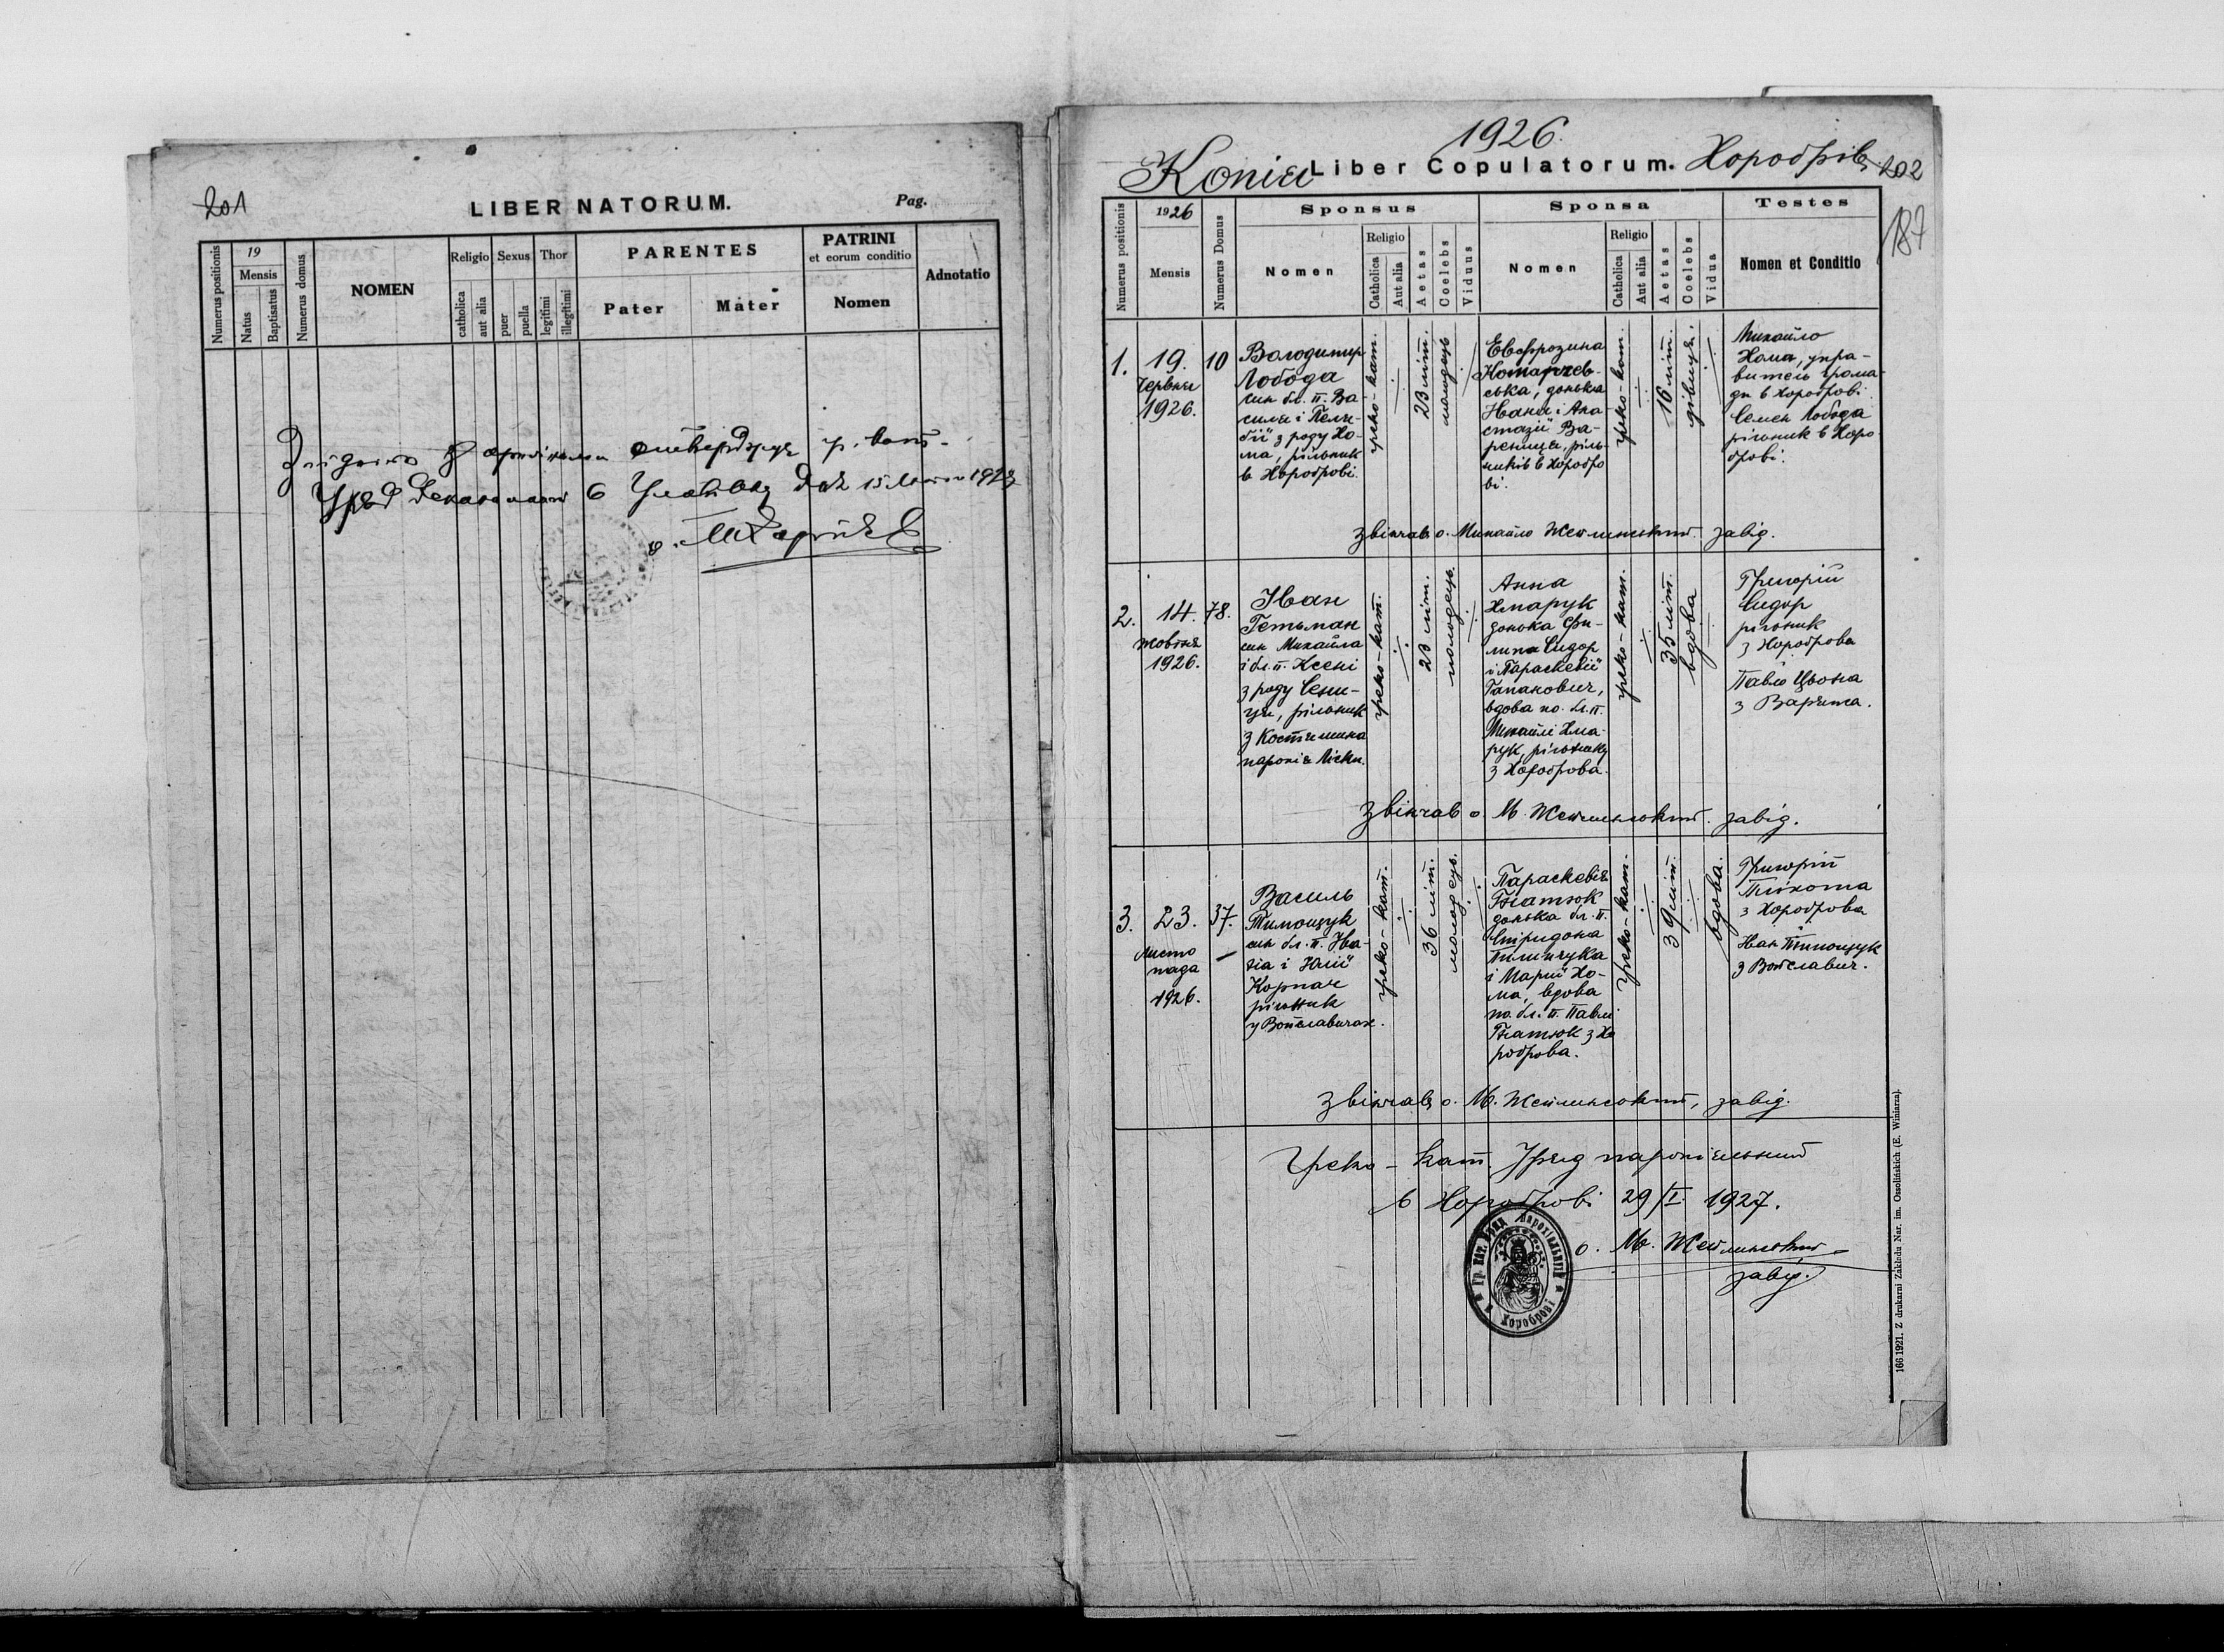 201
LIBER NATORUM.
Pag.
Numerus positionis
19
Mensis
Natus
Baptisatus
Numerus domus
NOMEN
Religio
catholica
aut alia
Sexus
puer
puella
Thor
legitimi
illegitimi
PARENTES
Pater
Mater
PATRINI
et eorum conditio
Nomen
Adnotatio
Згідність з оригіналом стверджує гр. кат.
Уряд деканальний в 15 1927
о.
1926.
Копія Liber Copulatorum. Хоробрів
202
187
Numerus positionis
1926
Mensis
Numerus Domus
Sponsus
Nomen
Religio
Catholica
Aut alia
Aetas
Coelebs
Viduus
Sponsa
Nomen
Religio
Catholica
Aut alia
Aetas
Coelebs
Vidua
Testes
Nomen et Conditio
1.
19.
Червня
1926.
10
Володимир
Лобода
син бл. п. Ва-
силя і Пела-
ґії з роду Хо-
ма, рільник
в Хороброві.
греко-кат.
23 літ.
молодець
Евфрозина
Комарнев-
ська, донька
Івана і Ана-
стазії Ва-
рениця, ріль-
ників в Хоробро
ві.
греко-кат.
16 літ.
дівиця.
Михайло
Хома, упра-
витель грома-
ди в Хороброві.
Семен Лобода
рільник в Хоро
брові.
звінчав о. Михайло Жемлинський. завід.
2.
14.
жовтня
1926.
78.
Іван
Гетьман
син Михайла
і бл. п. Ксені
з роду Сени-
ця, рільник
з Костяшина
парохія Ліски.
греко-кат.
23 літ.
молодець.
Анна
Хмарук
донька Фи-
липа Сидор
і Параскевії
Гапанович,
вдова по бл. п.
Михайлі Хма
рук, рільнику
з Хороброва.
греко-кат.
35 літ.
вдова
Григорій
Сидор
рільник
з Хороброва
Павло Цьона
з Варяжа.
звінчав о. М. Жемлинський. завід.
3.
23.
листо
пада
1926.
37.
Василь
Тимощук
син бл. п. Іва-
на і Юлії
Корпач
рільник
у Войславичах.
греко-кат.
36 літ.
молодець.
Параскевія
Гнатюк
донька бл. п.
Спіридона
Пилипчука
і Марії Хо-
ма, вдова
по бл. п. Павлі
Гнатюк з Хо
роброва.
греко-кат.
39 літ.
вдова.
Григорій
Пліхота
з Хороброва
Іван Тимощук
з Войславич.
звінчав о. М. Жемлинський, завід.
Греко-кат. Уряд парохіяльний
в Хороброві 29/I 1927.
о. М. Жемлинський
завід.
Гр. Кат. Уряд Парохіяльний Хороброві
166 1921. Z drukarni Zakładu Nar. im. Ossolińskich (E. Winiarza)